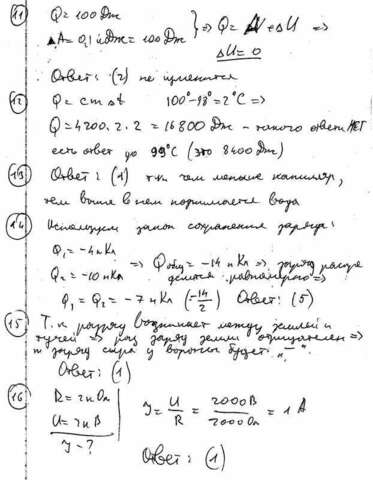 11 Q = 100 Дж
ΔA = 0,1 кДж = 100 Дж } => Q = A + ΔU =>
ΔU = 0
Ответ: (2) не изменится
12 Q = c m Δt 100° - 98° = 2°C =>
Q = 4200 · 2 · 2 = 16800 Дж - такого ответа НЕТ
есть ответ до 99°C (это 8400 Дж)
13 Ответ: (1) т.к чем меньше капилляр,
тем выше в нем поднимается вода
14 Используем закон сохранения заряда:
Q₁ = -4 нКл
Q₂ = -10 нКл => Qобщ = -14 нКл => заряд распре
делится равномерно =>
Q₁ = Q₂ = -7 нКл (-14/2) Ответ: (5)
15 Т.к разряд возникает между землей и
тучей => раз заряд земли отрицателен =>
и заряд сыра у вороны будет "-".
Ответ: (1)
16 R = 2 кОм
U = 2 кВ
J - ?
J = U/R = 2000В/2000Ом = 1 А
Ответ: (1)